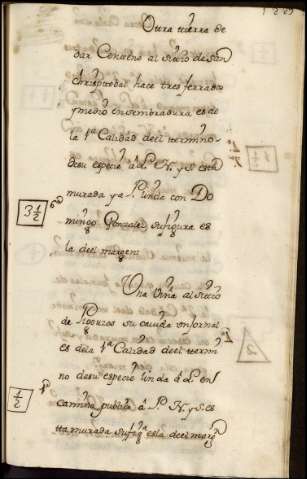 Otra tierra de
dar Centeno al sitio de San
Christobal hace tres ferrados
y medio en sembradura es de
la 1ª Calidad deel termino
desu especie
murada y a P. linda con Do
mingo Gonzalez su figura es
la deel margen
3 1/2
Una Viña al sitio
de su cavida un jornal
es dela 1ª Calidad deel termi
no desu especie linda á L. con
camino publico á P. N. y S. es
tta murada su figª es la deel margn
1/2